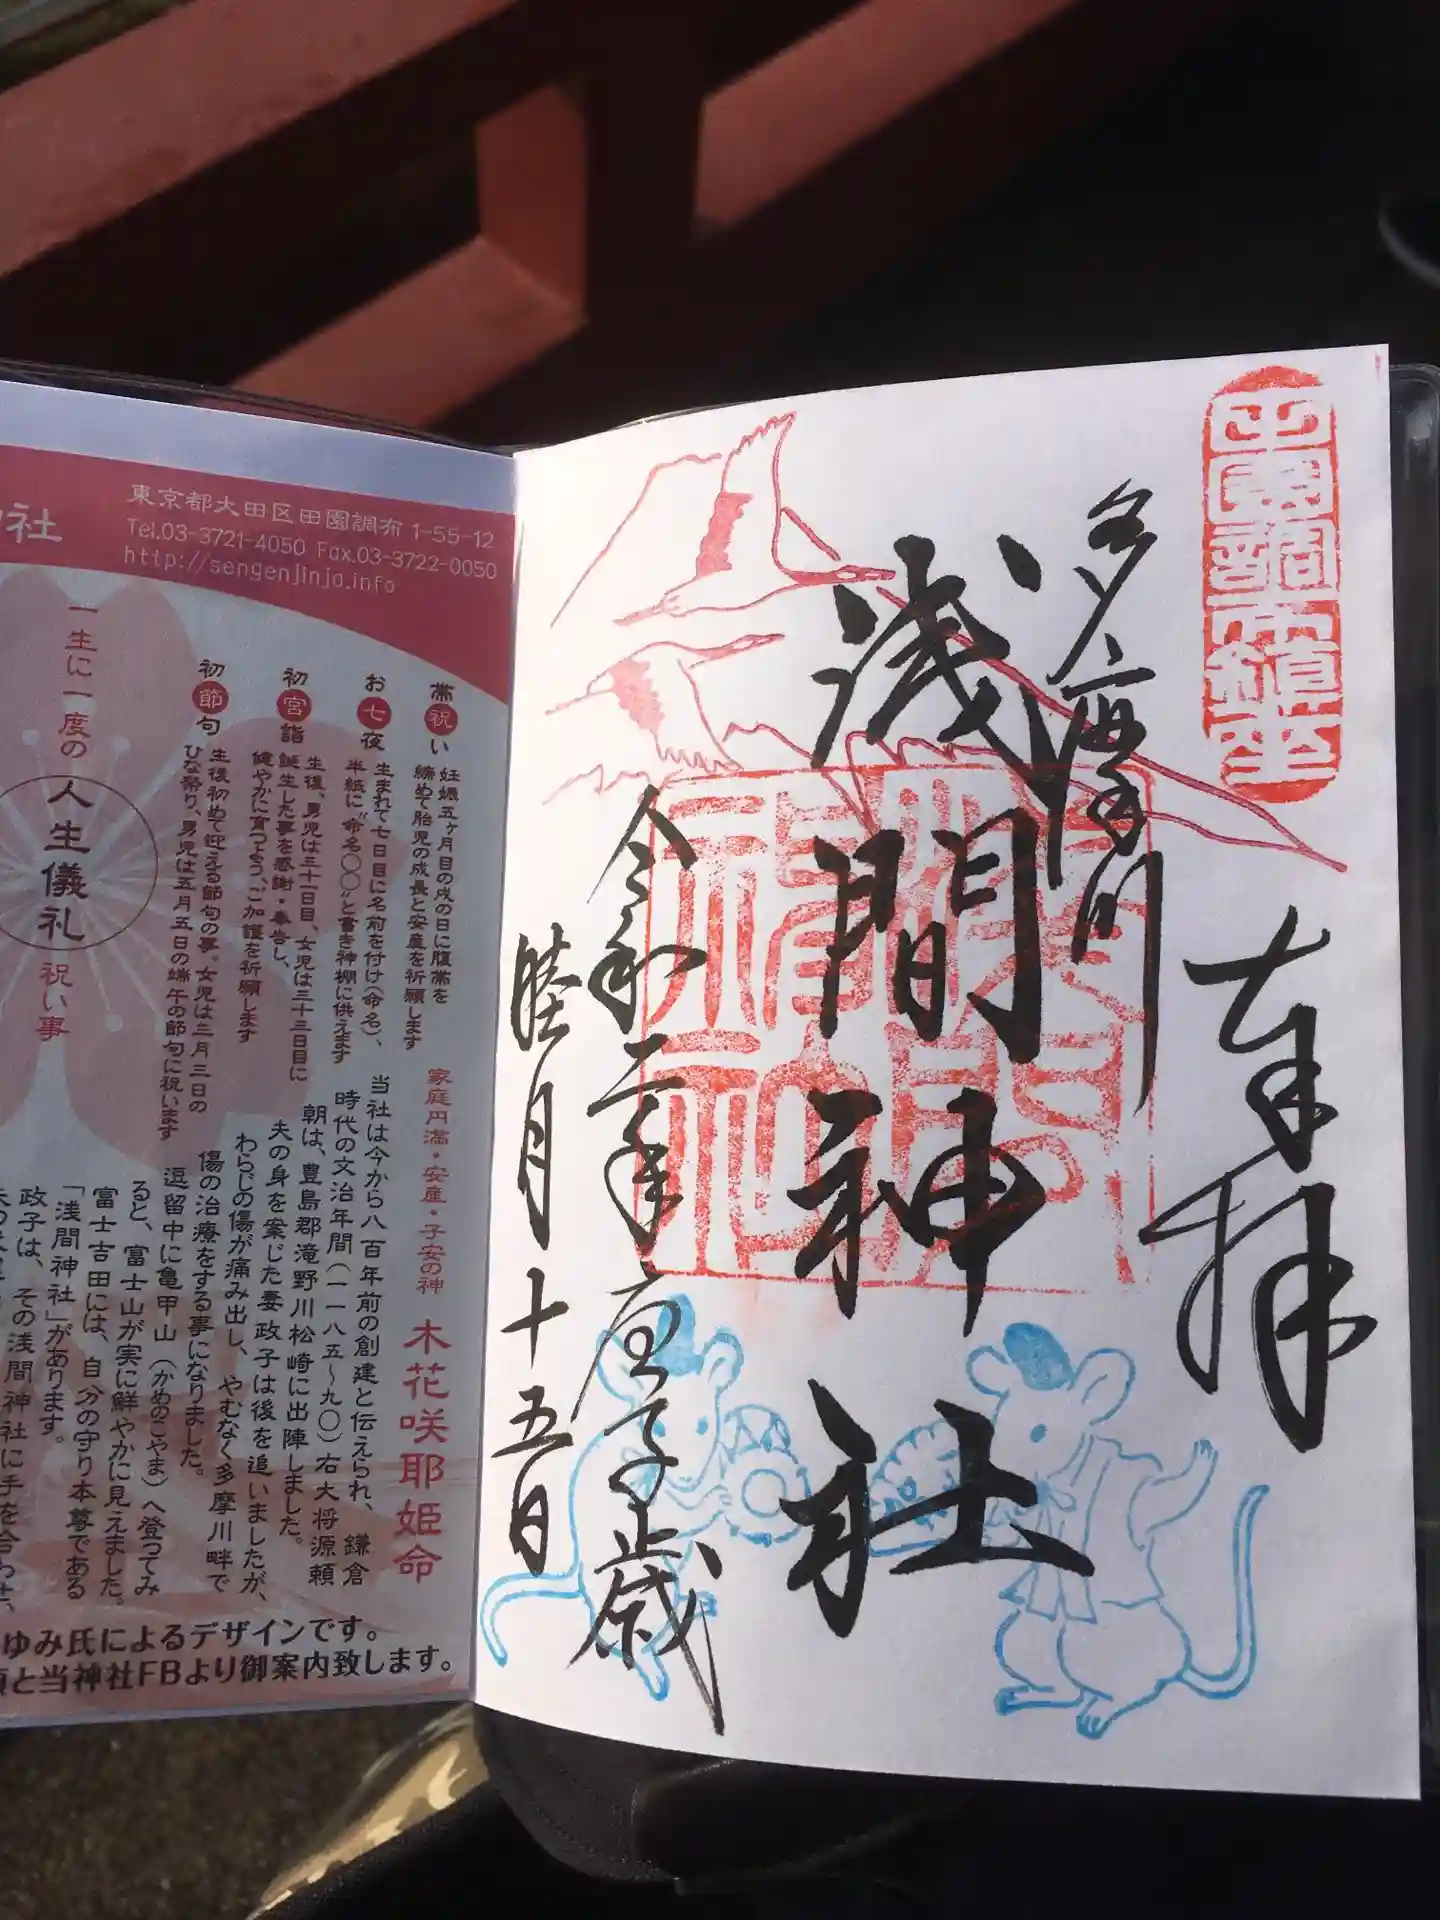 田園調布鎮座
奉拝
多摩川
浅間神社
令和二年庚子歳
睦月十五日
東京都大田区田園調布 1-55-12
Tel.03-3721-4050 Fax.03-3722-0050
http://sengenjinja.info
帯祝い
妊娠五ヶ月目の戌の日に腹帯を
締めて胎児の成長と安産を祈願します
お七夜
生まれて七日目に名前を付け(命名)、
半紙に"命名○○"と書き神棚に供えます
初宮詣
生後、男児は三十一日目、女児は三十三日目に
誕生した事を感謝・奉告し、
健やかに育つよう、ご加護を祈願します
初節句
生後初めて迎える節句の事。女児は三月三日の
ひな祭り、男児は五月五日の端午の節句に祝います
一生に一度の
人生儀礼
祝い事
家庭円満・安産・子安の神 木花咲耶姫命
当社は今から八百年前の創建と伝えられ、鎌倉
時代の文治年間(一一八五〜九〇)右大将源頼
朝は、豊島郡滝野川松崎に出陣しました。
夫の身を案じた妻政子は後を追いましたが、
わらじの傷が痛み出し、やむなく多摩川畔で
傷の治療をする事になりました。
逗留中に亀甲山(かめのこやま)へ登ってみ
ると、富士山が実に鮮やかに見えました。
富士吉田には、自分の守り本尊である
「浅間神社」があります。
政子は、その浅間神社に手を合わせ、
ゆみ氏によるデザインです。
と当神社FBより御案内致します。